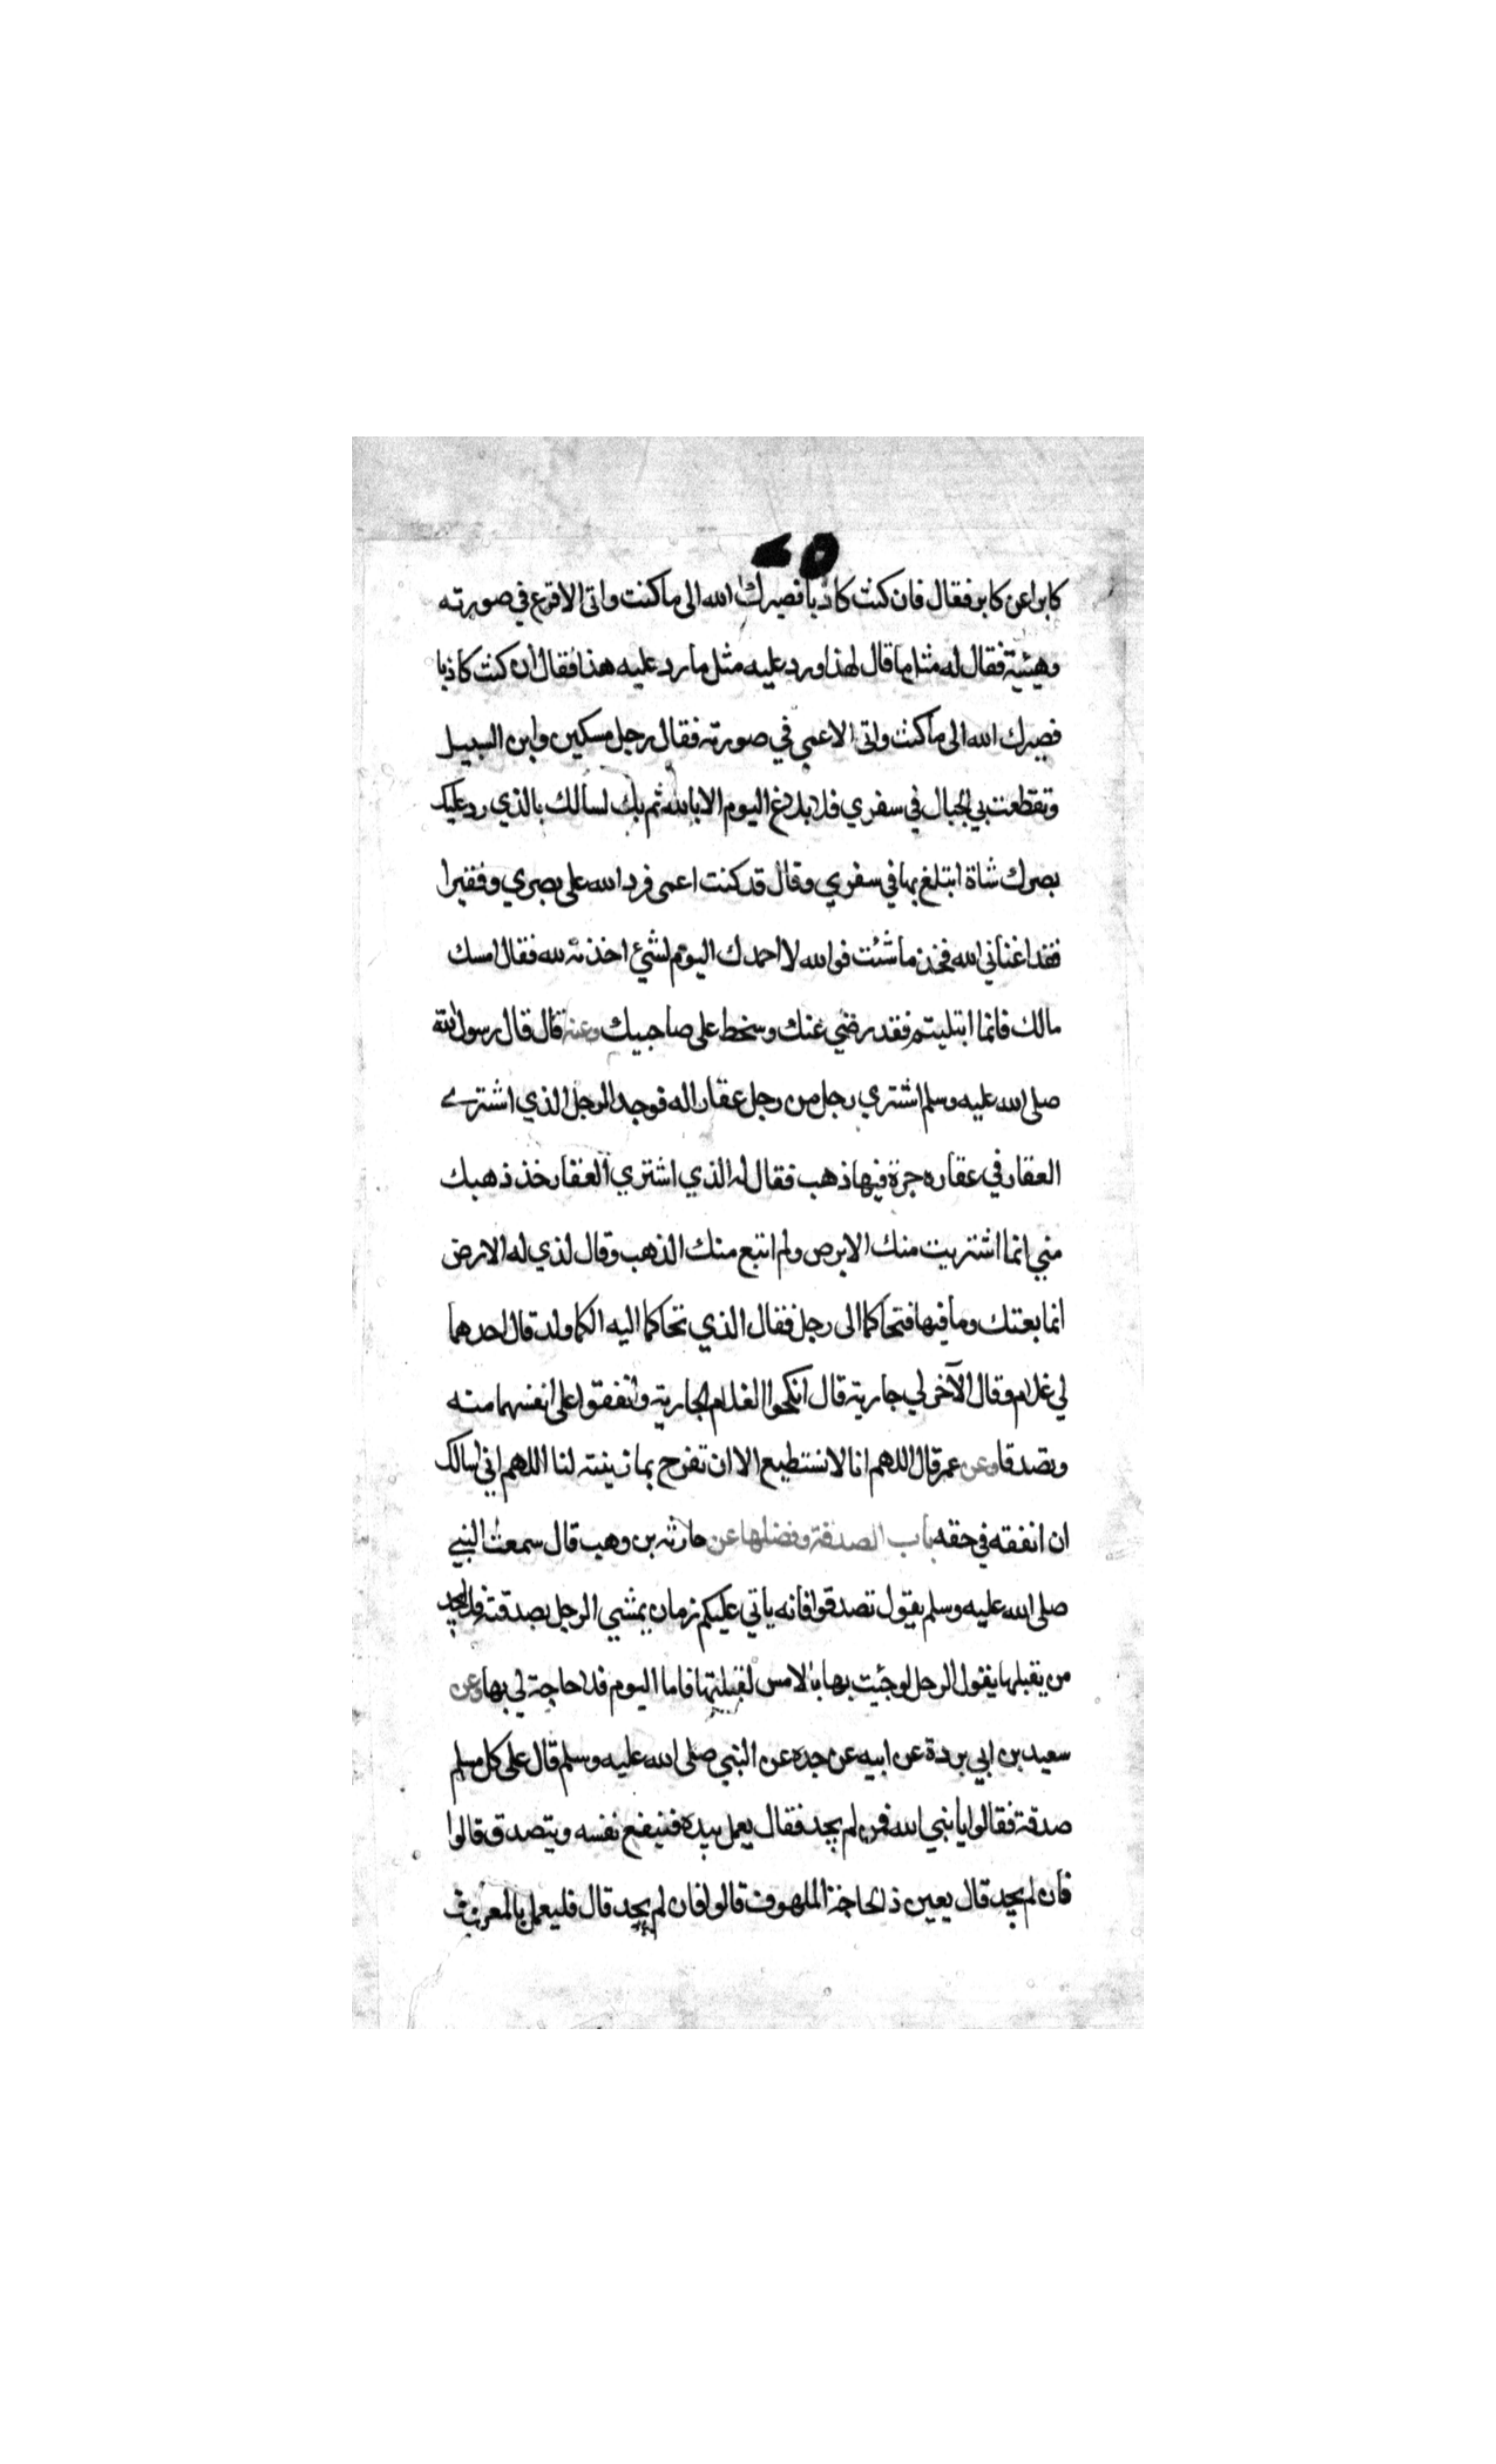 كابرا عن كابر فقال فان كنت كاذبا فصيرك الله الى ما كنت واتى الاقرع في صورته
وهيئية فقال له مثل ما قال لهذا ورد عليه مثل ما رد عليه هذا فقال ان كنت كاذبا
فصيرك الله الى ما كنت واتى الاعمى في صورته فقال رجل مسكين وابن السبيل
وتقطعت بي الحبال في سفري فلا بلاغ اليوم الا بالله ثم بك اسالك بالذي رد عليك
بصرك شاة ابتلغ بها في سفري وقال قد كنت اعمى فرد الله على بصري وفقيرا
فقد اغناني الله فخذ ما شئت فوالله لا احمدك اليوم لشئ اخذته لله فقال امسك
مالك فانما ابتليتم فقد رضي عنك وسخط على صاحبيك وعنه قال قال رسول الله
صلى الله عليه وسلم اشتري رجل من رجل عقارا له فوجد الرجل الذي اشترى
العقار في عقاره جرة فيها ذهب فقال له الذي اشتري العقار خذ ذهبك
مني انما اشتريت منك الارض ولم ابتع منك الذهب وقال لذي له الارض
انما بعتك وما فيها فتحاكما الى رجل فقال الذي تحاكما اليه الكما ولد قال احدهما
لي غلام وقال الآخر لي جارية قال انكحوا الغلام الجارية وانفقوا على انفسهما منه
وتصدقا وعن عمر قال اللهم انا لا نستطيع الا ان تفرح بما زينته لنا اللهم اني اسالك
ان انفقه في حقه باب الصدقة وفضلها عن حارثه بن وهب قال سمعت النبي
صلى الله عليه وسلم يقول تصدقوا فانه ياتي عليكم زمان يمشي الرجل بصدقته فلا يجد
من يقبلها يقول الرجل لو جئيت بها بالامس لقبلتها فاما اليوم فلا حاجة لي بها وعن
سعيد بن ابي بردة عن ابيه عن جده عن النبي صلى الله عليه وسلم قال على كل مسلم
صدقة فقالوا يا نبي الله فمن لم يجد فقال يعمل بيده فينفع نفسه ويتصدق قالوا
فان لم يجد قال يعين ذا لحاجة الملهوف قالوا فان لم يجد قال فليعمل بالمعروف